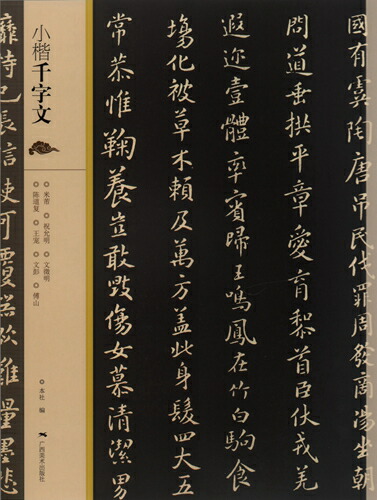 小楷千字文
米芾 祝允明 文徵明
陈道复 王宠 文彭 傅山
本社 编
广西美术出版社
國有虞陶唐吊民伐罪周發商湯坐朝
問道垂拱平章愛育黎首臣伏戎羌
遐迩壹體率賓歸王鳴鳳在竹白駒食
塲化被草木賴及萬方盖此身髮四大五
常恭惟鞠養豈敢毀傷女慕清潔男
靡恃己長信使可覆器欲難量墨悲